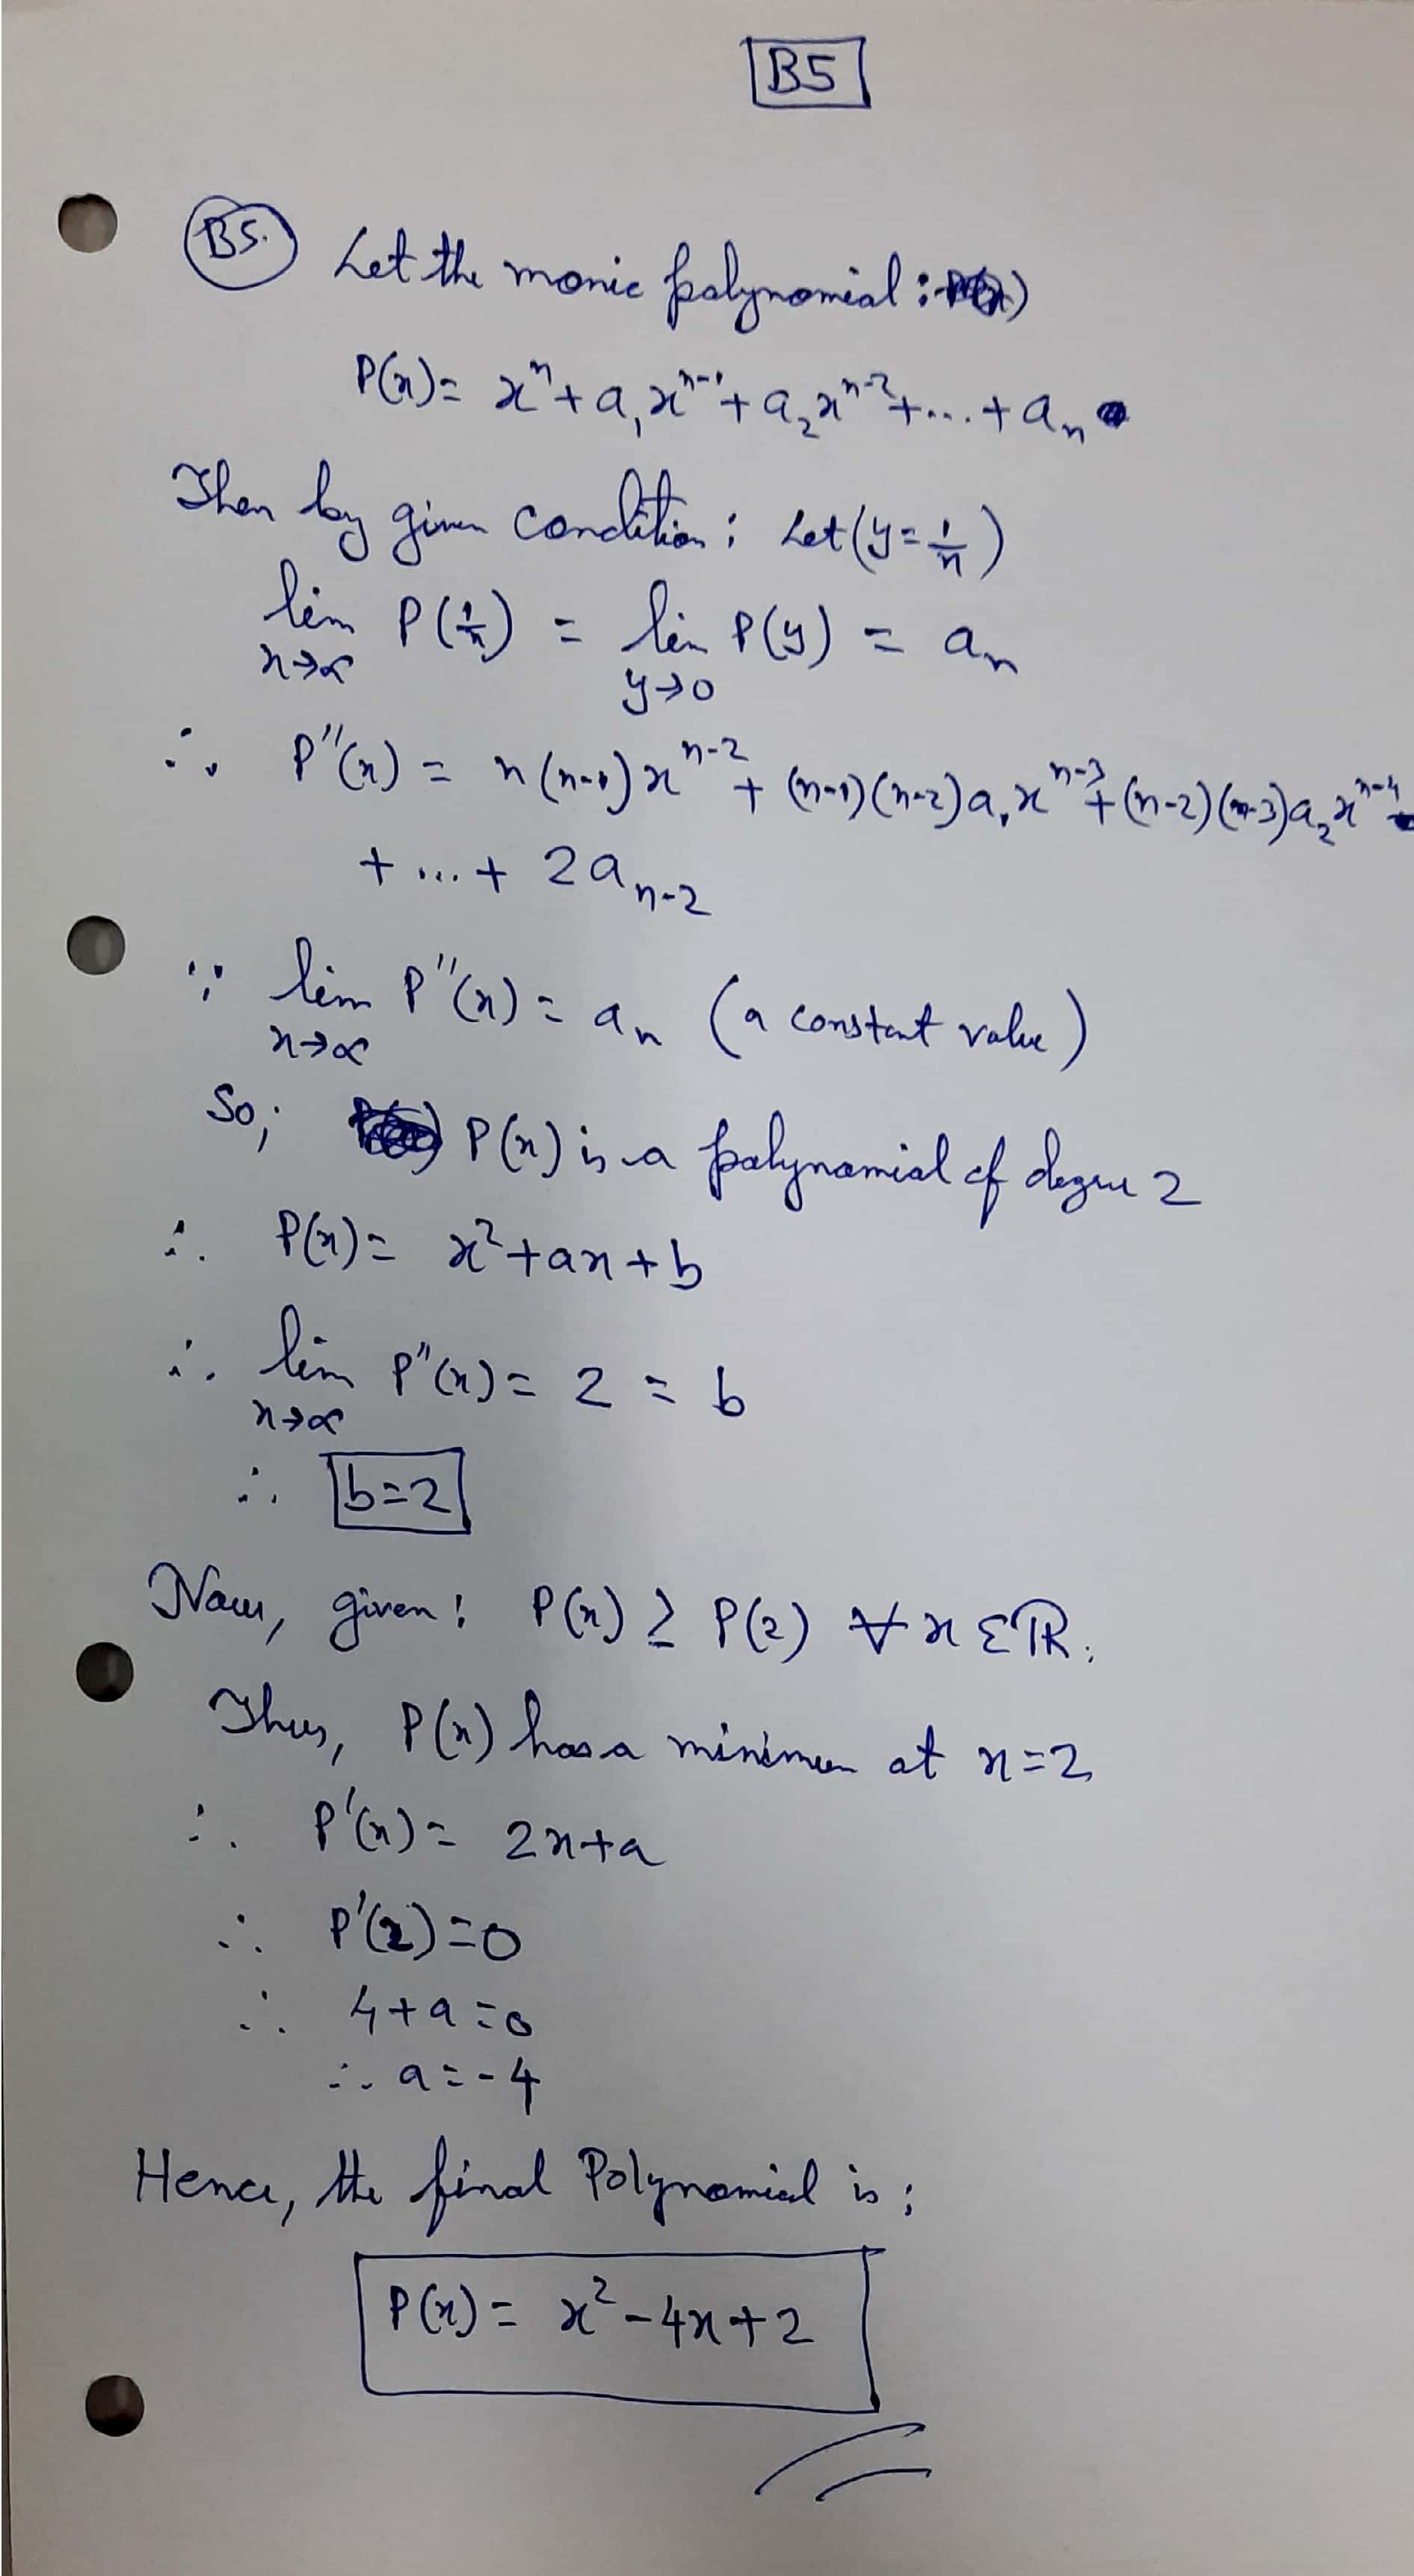 B5
B5. Let the monic polynomial :
P(x) = xⁿ + a₁xⁿ⁻¹ + a₂xⁿ⁻² + ... + aₙ
Then by given condition : Let (y = 1/x)
lim x→∞ P(1/x) = lim y→0 P(y) = aₙ
∴ P''(x) = n(n-1)xⁿ⁻² + (n-1)(n-2)a₁xⁿ⁻³ + (n-2)(n-3)a₂xⁿ⁻⁴
+ ... + 2aₙ₋₂
∵ lim x→∞ P''(x) = aₙ (a constant value)
So; P(x) is a polynomial of degree 2
∴ P(x) = x² + ax + b
∴ lim x→∞ P''(x) = 2 = b
∴ b=2
Now, given : P(x) ≥ P(2) ∀ x ∈ ℝ.
Thus, P(x) has a minimum at x=2
∴ P'(x) = 2x+a
∴ P'(2)=0
∴ 4+a=0
∴ a=-4
Hence, the final Polynomial is ;
P(x) = x² - 4x + 2